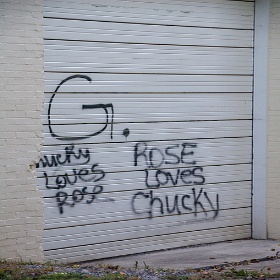 G.
Chucky
Loves
Rose
ROSE
LOVES
Chucky